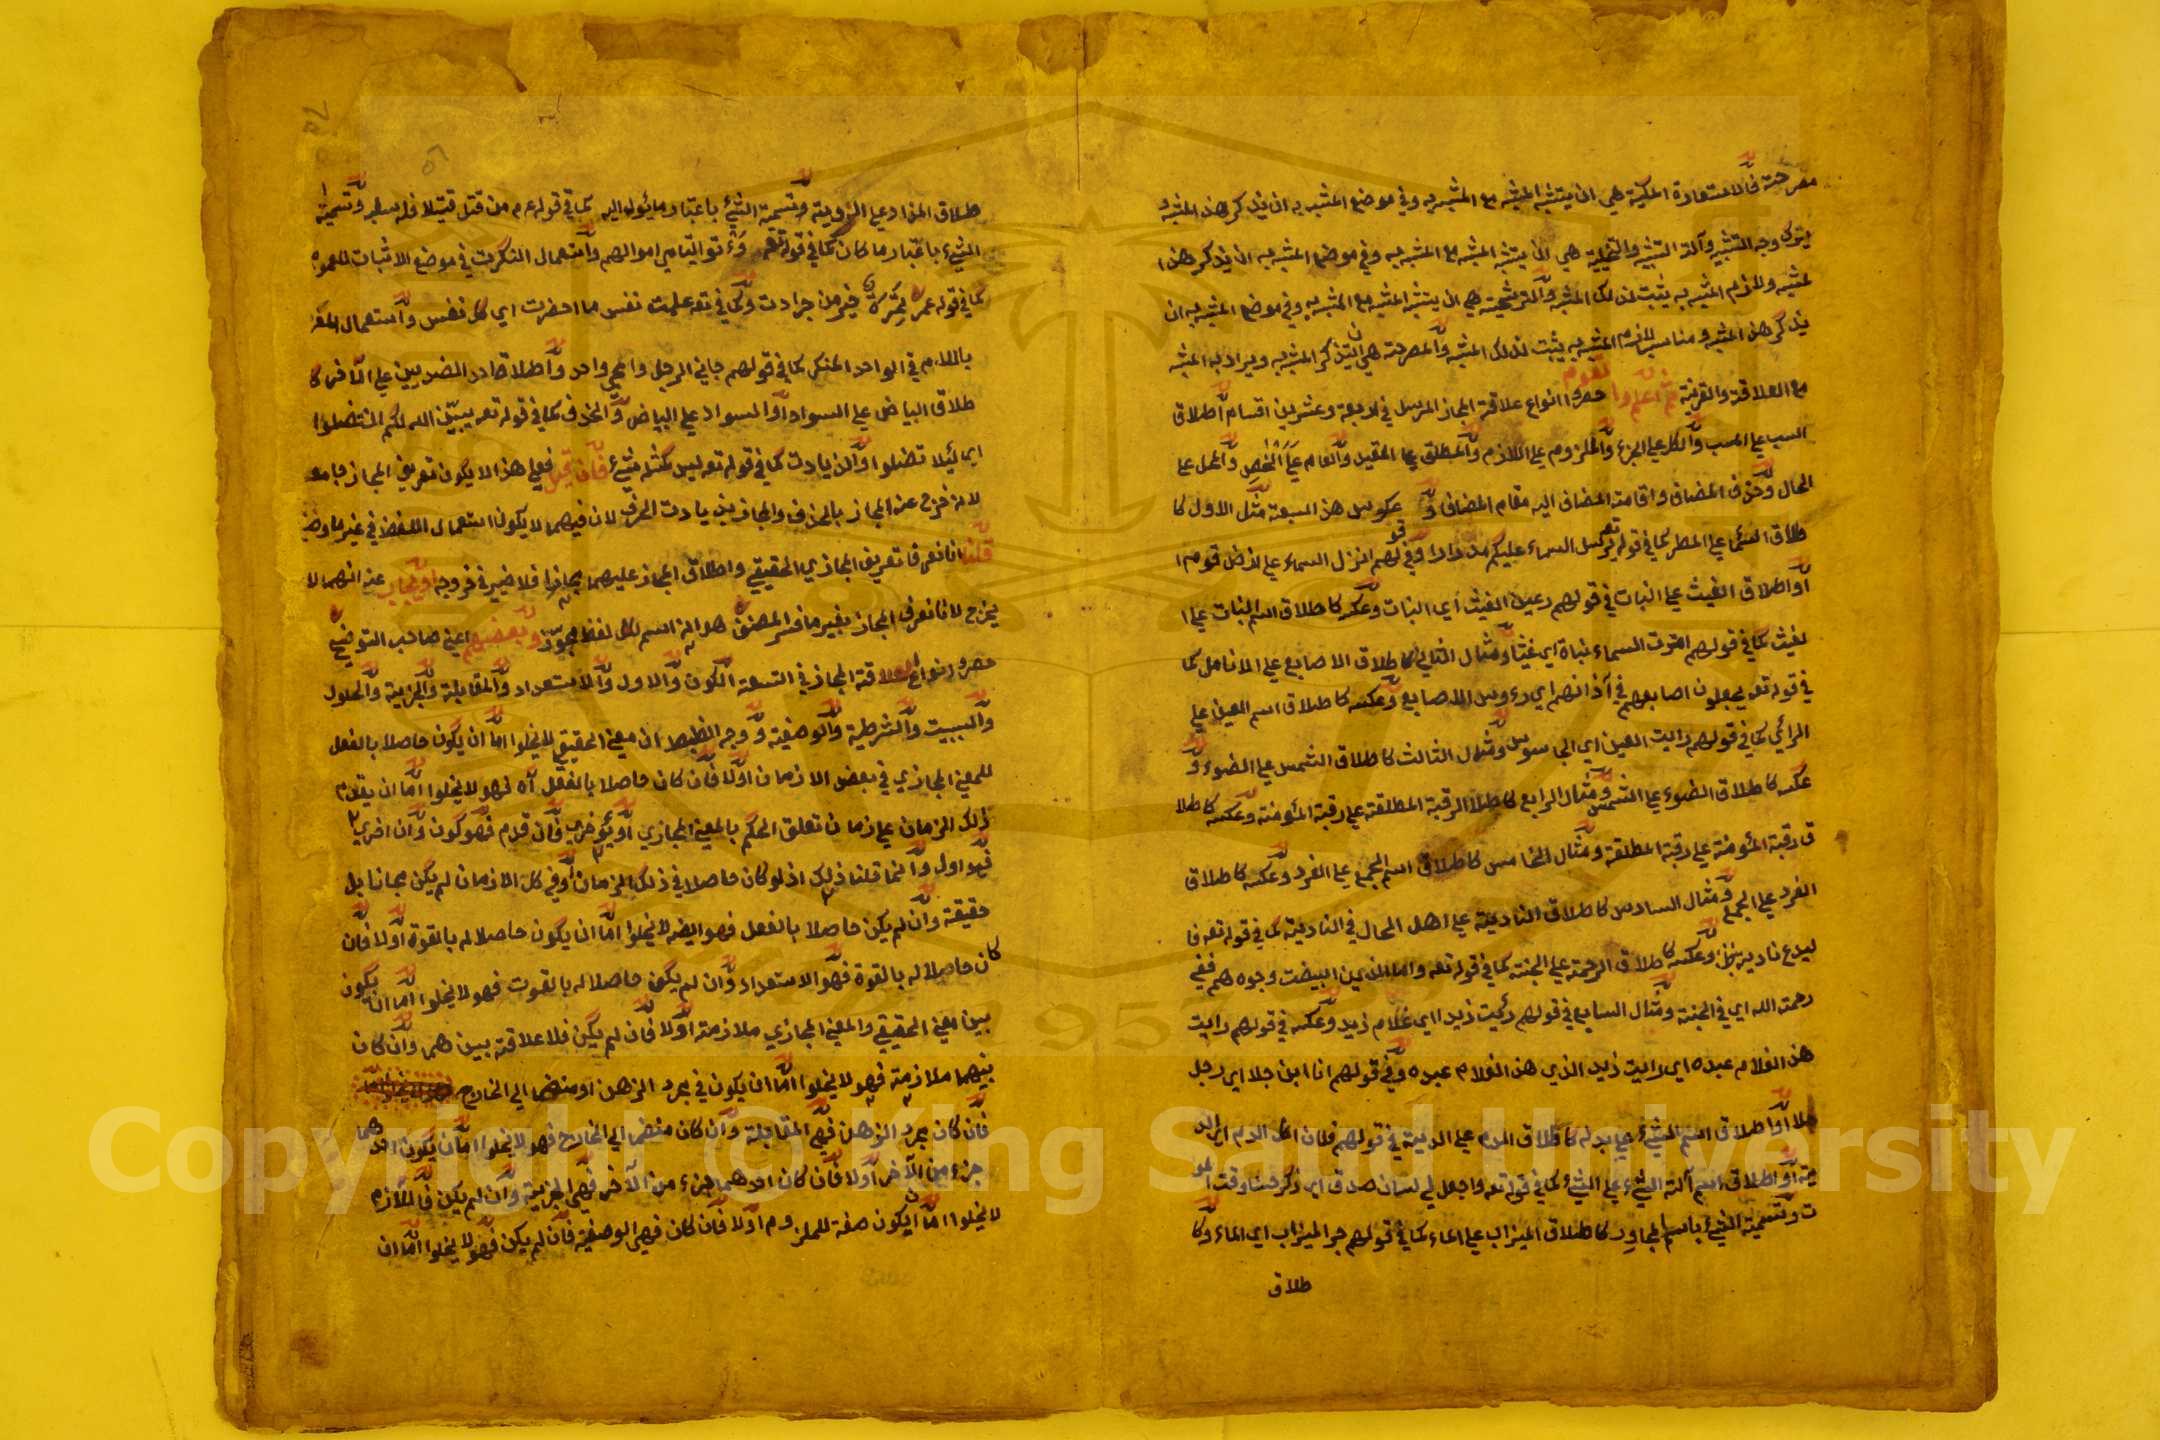 مصرحة فالاستعارة المكنية هي ان يشبه المشبه مع المشبه به وفي موضع المشبه به ان يذكر هذا المشبه
يترك وجه التشبيه وآلة التشبيه والتخييلية هي ان يشبه المشبه مع المشبه به وفي موضع المشبه به ان يذكر هذا ا
لمشبه ولازم المشبه به يثبت لذلك المشبه والترشيحية هي ان يشبه المشبه مع المشبه به وفي موضع المشبه به ان
يذكر هذا المشبه ومناسب لازم المشبه به يثبت لذلك المشبه والمصرحة هي ان يذكر المشبه به ويراد به المشبه
مع العلاقة والقرينة ثم اعلموا حصروا انواع علاقة المجاز المرسل في اربعة وعشرين اقسام اطلاق
السبب على المسبب والكل على الجزء والملزوم على اللازم والمطلق على المقيد والعام على الخاص والمحل على
الحال وحذف المضاف واقامة المضاف اليه مقام المضاف و عكوس هذه السبعة مثل الاول كا
طلاق السماء على المطر كما في قوله تعـ يرسل السماء عليكم مدرارا وفي قولهم انزل السماء على ارض قوم ا
او اطلاق الغيث على النبات في قولهم رعينا الغيث اي النبات وعكسه كاطلاق اسم النبات على ا
لغيث كما في قولهم امطرت السماء نباتا اي غيثا ومثال الثاني كاطلاق الاصابع على الانامل كما
في قوله تعـ يجعلون اصابعهم في آذانهم اي رءوس الاصابع وعكسه كاطلاق اسم العين على
الرائي كما في قولهم رايت العين اي الجاسوس ومثال الثالث كاطلاق الشمس على الضوء و
عكسه كاطلاق الضوء على الشمس ومثال الرابع كاطلاق الرقبة المطلقة على رقبة المؤمنة وعكسه كاطلا
ق رقبة المؤمنة على رقبة المطلقة ومثال الخامس كاطلاق اسم الجمع على الفرد وعكسه كاطلاق
الفرد على الجمع ومثال السادس كاطلاق النادية على اهل المحال في النادية كما في قوله تعـ فا
ليدع ناديه وعكسه كاطلاق الرحمة على الجنة كما في قوله تعـ واما الذين ابيضت وجوههم ففي
رحمة الله اي في الجنة ومثال السابع في قولهم رئيت زيدا اي غلام زيد وعكسه في قولهم رايت
هذا الغلام عبده اي رايت زيد الذي هذا الغلام عبده وفي قولهم انا ابن جلا اي رجل
جلا او اطلاق اسم الشيء على بدله كاطلاق الدم على الدية في قولهم فلان اكل الدم اي الد
ية او اطلاق اسم آلة الشيء على الشيء كما في قوله تعـ واجعل لي لسان صدق اي ذكر حسنا وقت المو
ت وتسمية الشيء باسم مجاوره كاطلاق الميزاب على الماء كما في قولهم جر الميزاب اي الماء وكا
طلاق
طلاق المزاد على الروية وتسمية الشيء باعتبار ما يئول اليه كما في قوله عم من قتل قتيلا فله سلبه وتسمية
الشيء باعتبار ما كان كما في قوله تعـ وءاتوا اليتامى اموالهم واستعمال النكرة في موضع الاثبات للعموم
كما في قوله عمر تمرة خير من جرادة وكما في تعـ علمت نفس ما احضرت اي كل نفس واستعمال المعر
باللام في الواحد المنكر كما في قولهم جاني الرجل واي واحد واطلاق احد الضدين على الآخر كا
طلاق البياض على السواد او السواد على البياض والحذف كما في قوله تعـ يبين الله لكم ان تضلوا
اي لئلا تضلوا والزيادت كما في قوله تعـ ليس كمثله شيء فان قيل فعلى هذا لا يكون تعريف المجاز جامعـ
لانه خرج عنه المجاز بالحذف والمجاز بزيادة الحرف لان فيهما لا يكون استعمال اللفظ في غير ما وضـ
قلنا انا نعرفا تعريف المجازي الحقيقي واطلاق المجاز عليهما مجازا فلا ضير في خروجه او يجاب عنه انهما لا
يخرج لانا نعرف المجاز بغير ما فسر المصنف هو انه اسم لكل لفظ تجوز وبعضهم اعني صاحب التوضيح
حصروا انواع العلاقة المجاز في التسعة الكون والاول والاستعداد والمقابلة والجزئية والحلول
والسببيت والشرطية والوصفية ووجه الضبط ان معنى الحقيقي لا يخلوا اما ان يكون حاصلا بالفعل
للمعنى المجازي في بعض الازمان اولا فان كان حاصلا بالفعل آه فهو لا يخلوا اما ان يقدم
ذلك الزمان على زمان تعلق الحكم بالمعنى المجازي او يؤخر فان قدم فهو كون وان اخر
فهو اول وانما قلنا ذلك اذ لو كان حاصلا في ذلك الزمان او في كل الازمان لم يكن مجازا بل
حقيقة وان لم يكن حاصلا بالفعل فهو ايضه لا يخلوا اما ان يكون حاصلا له بالقوة اولا فان
كان حاصلا له بالقوة فهو الاستعداد وان لم يكن حاصلا له بالقوت فهو لا يخلوا اما ان يكون
بين معنى الحقيقي والمعنى المجازي ملازمة اولا فان لم يكن فلا علاقة بينهما وان كان
بينهما ملازمة فهو لا يخلوا اما ان يكون في مجرد الذهن او منضما الى الخارج
فان كان مجرد الذهن فهي المقابلة وان كان منضما الى الخارج فهو لا يخلوا اما ان يكون احدهما
جزء من الآخر اولا فان كان احدهما جزء من الآخر فهي الجزئية وان لم يكن فاللازم
لا يخلوا اما ان يكون صفة للملزوم اولا فان كان فهي الوصفية فان لم يكن فهو لا يخلوا اما ان
Copyright © King Saud University
1957